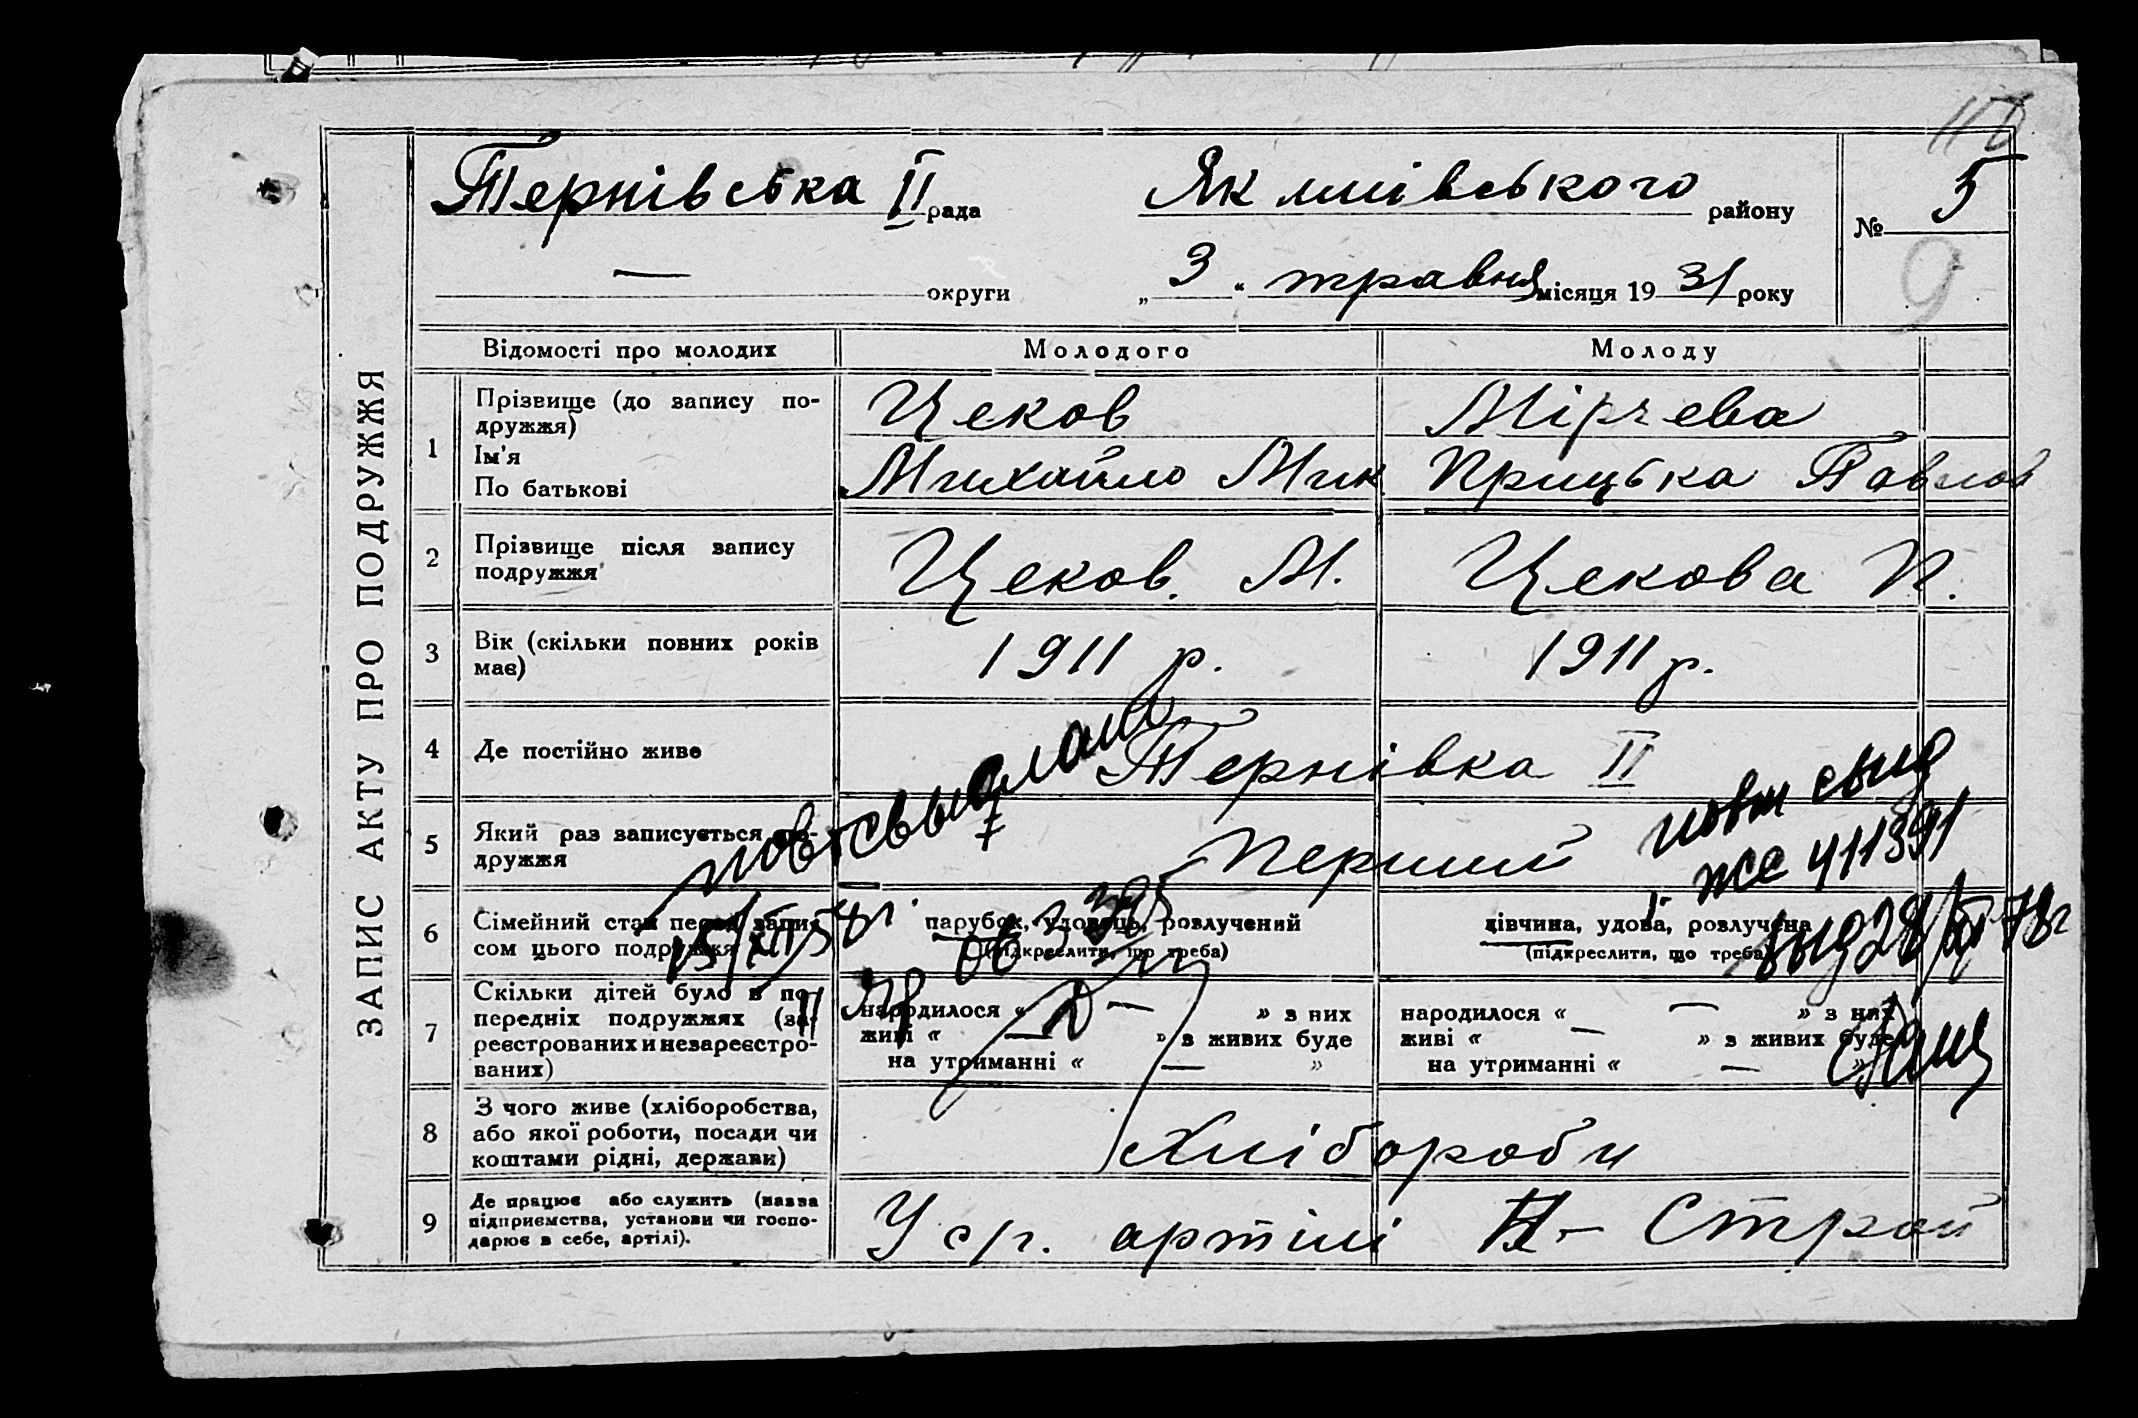 110
Тернівська II рада Якимівського району № 5
— округи „ 3 “ травня місяця 19 31 року
9
ЗАПИС АКТУ ПРО ПОДРУЖЖЯ
Відомості про молодих Молодого Молоду
1 Прізвище (до запису по-
дружжя) Цеков Мірчева
Ім'я
По батькові Михайло Мик. Прицька Павлов
2 Прізвище після запису
подружжя Цеков. М. Цекова П.
3 Вік (скільки повних років
має) 1911 р. 1911 р.
4 Де постійно живе Тернівка II
5 Який раз записується по-
дружжя Перший
6 Сімейний стан перед запи-
сом цього подружжя
парубок, удовець, розлучений
(підкреслити, що треба)
дівчина, удова, розлучена
(підкреслити, що треба)
7 Скільки дітей було в по-
передніх подружжях (за-
реєстрованих и незареєстро-
ваних)
народилося « — » з них
живі « — » з живих буде
на утриманні « — »
народилося « — » з них
живі « — » з живих буде
на утриманні « — »
8 З чого живе (хліборобства,
або якої роботи, посади чи
коштами рідні, держави) Хлібороби
9 Де працює або служить (назва
підприємства, установи чи госпо-
дарює в себе, артілі). У с/г. артілі Н-Строй
повт выд
ЖС 411391
выд 28/XI 78г